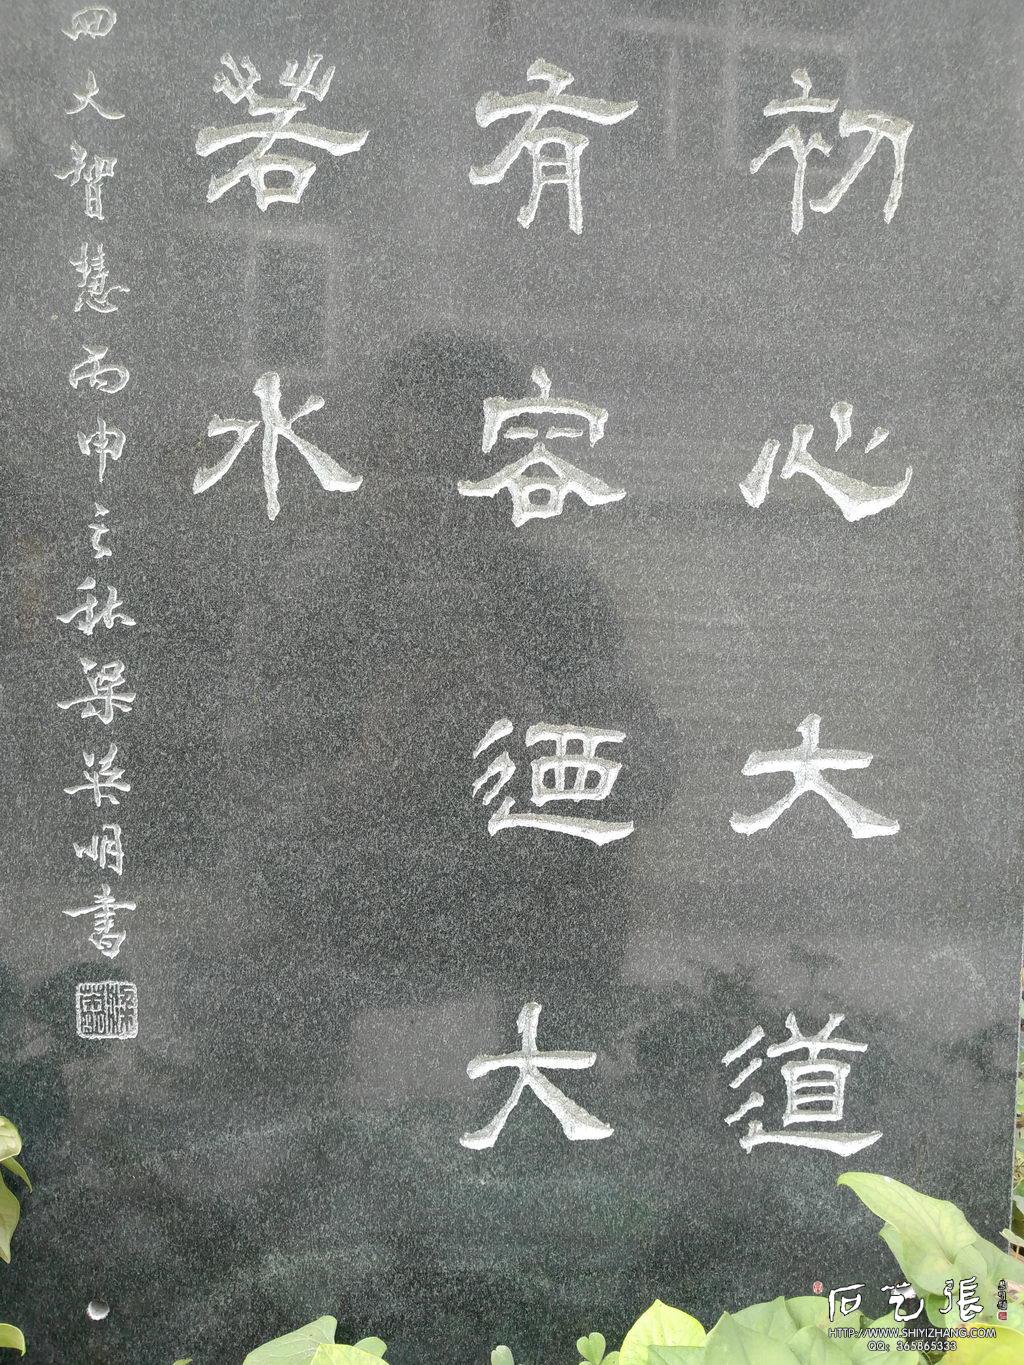 初心大道
有容迺大
若水
四大智慧丙申之秋梁英明書
石艺張
HTTP://WWW.SHIYIZHANG.COM
QQ: 365865333